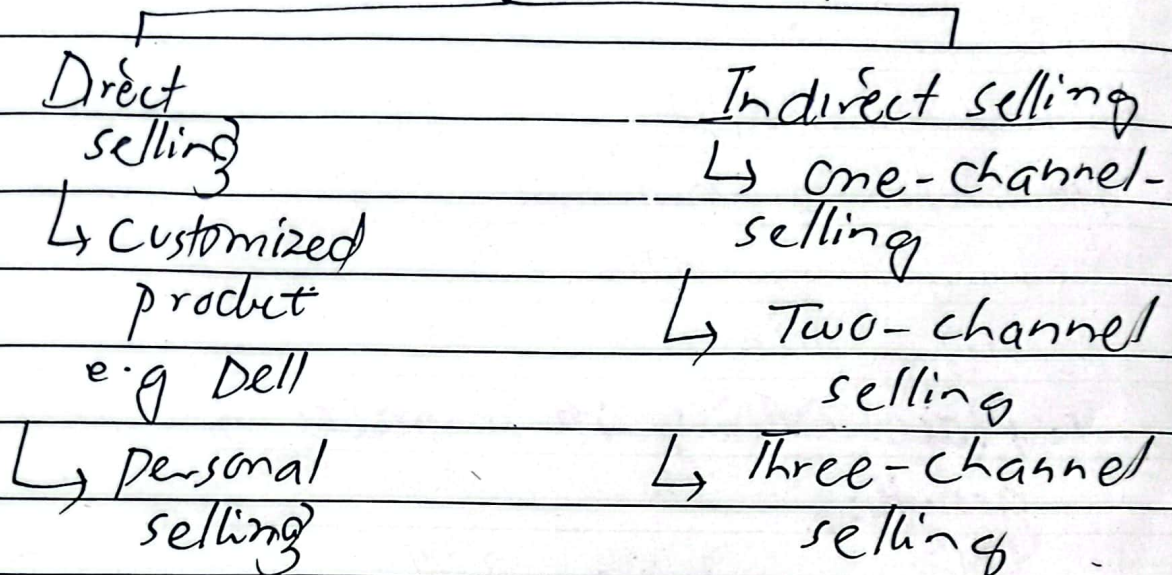 Direct
selling
↳ Customized
product
e.g Dell
↳ personal
selling
Indirect selling
↳ one-channel-
selling
↳ Two-channel
selling
↳ Three-channel
selling